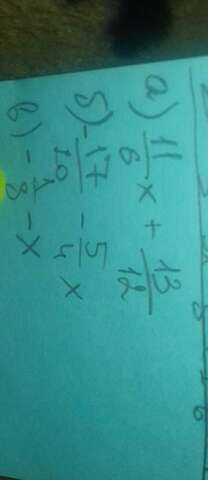 а) 11/6 x + 13/12
б) -17/10 - 5/4 x
в) - 1/8 - x